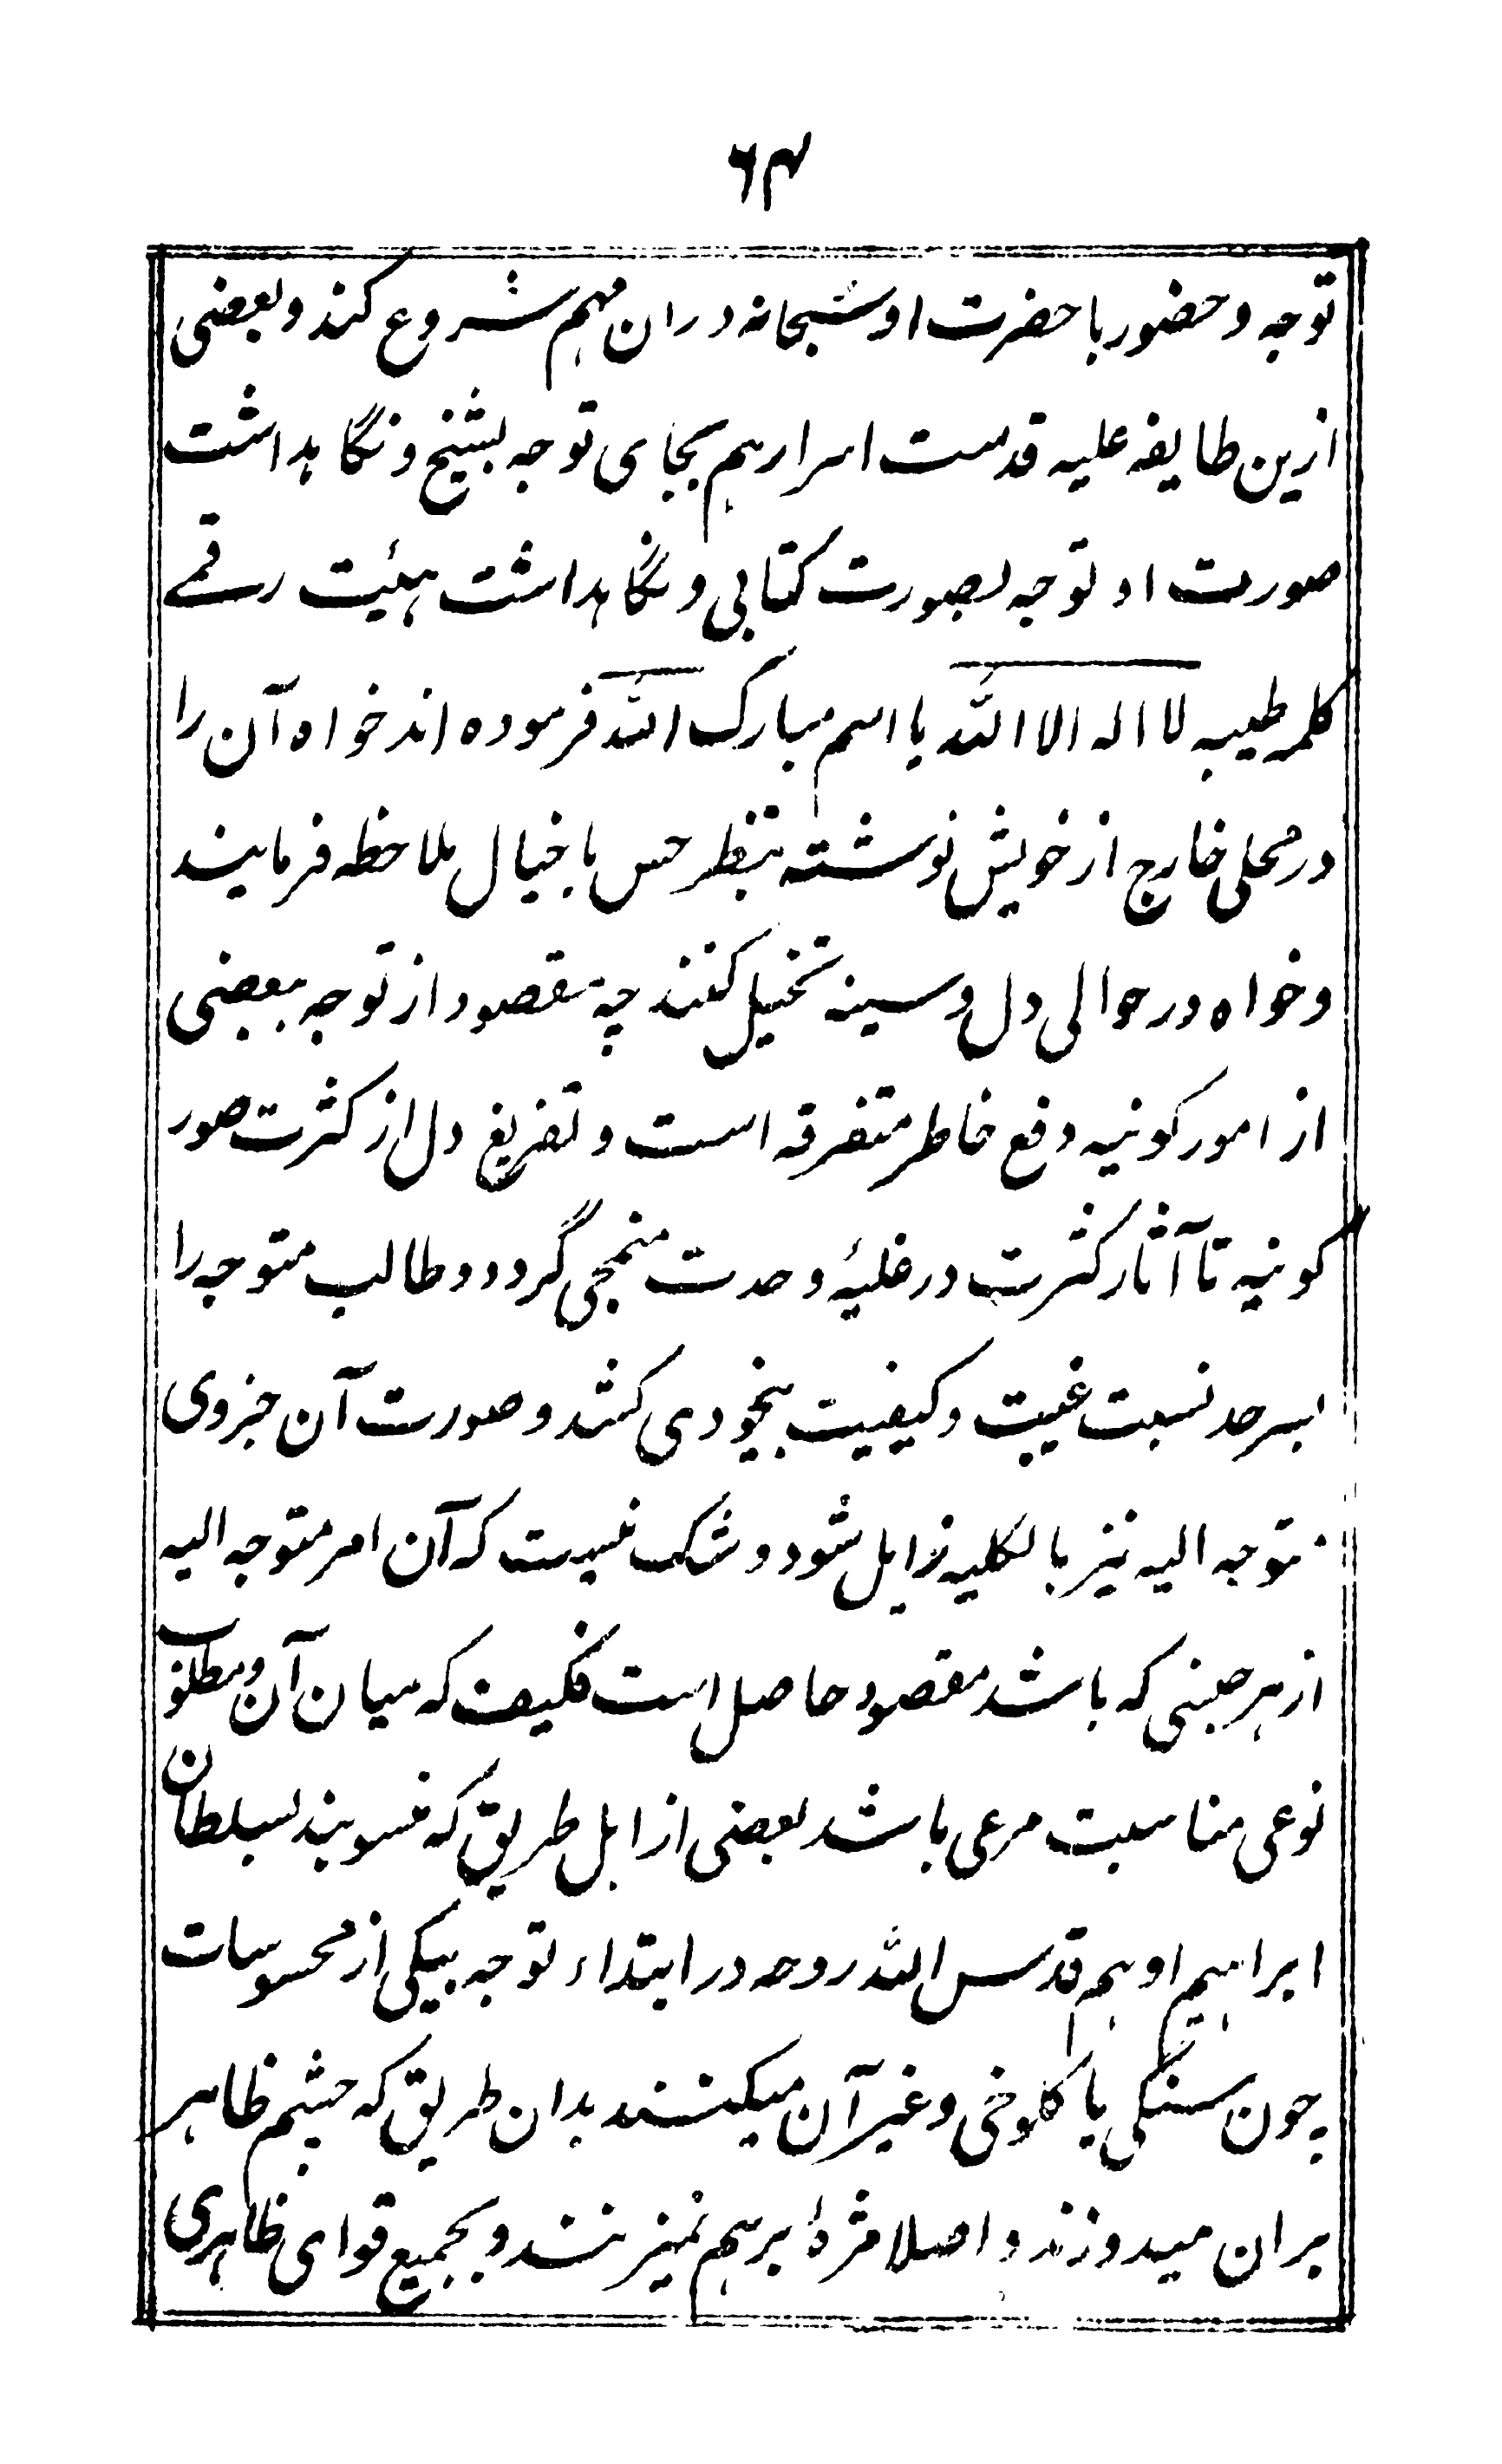 ۶۴
توجه و حضور با حضرت او سبحانه در ان مهم شروع کند و بعضی
ازین طایفه علیه قدست اسرارهم بجای توجه بشیخ و نگاهداشت
صورت او توجه بصورت کتابی و نگاهداشت هیئت رقمے
کلمه طیبه لا اله الا الله یا اسم مبارک الله فرموده اند خواه آن را
در محلی خارج از خویش نوشته بنظر حس یا خیال ملاحظه فرمایند
و خواه در حوالی دل و سینه تخیل کنند چه مقصود از توجه ببعضی
از امور کونیه دفع خاطر متفرقه است و تفریغ دل از کثرت صور
کونیه تا آثار کثرت در غلبۀ وحدت منمحی گردد و طالب متوجه را
بسرحد نسبت غیبت و کیفیت بیخودی کشد و صورت آن جزوی
متوجه الیه نیز بالکلیه زایل شود و شک نیست که آن امر متوجه الیه
از هر جنسی که باشد مقصود حاصل است فکیف که میان آن و مطلوب
نوعی مناسبت مرعی باشد بعضی از اهل طریق که منسوبند بسلطان
ابراهیم ادهم قدس الله روحه در ابتداء توجه بیکی از محسوسات
چون سنگی یا کلوخی و غیر آن میکنند بدان طریق که چشم ظاهر
بران میدوزند و اصلا مژۀ برهم نمیزنند و بجمیع قوای ظاهری